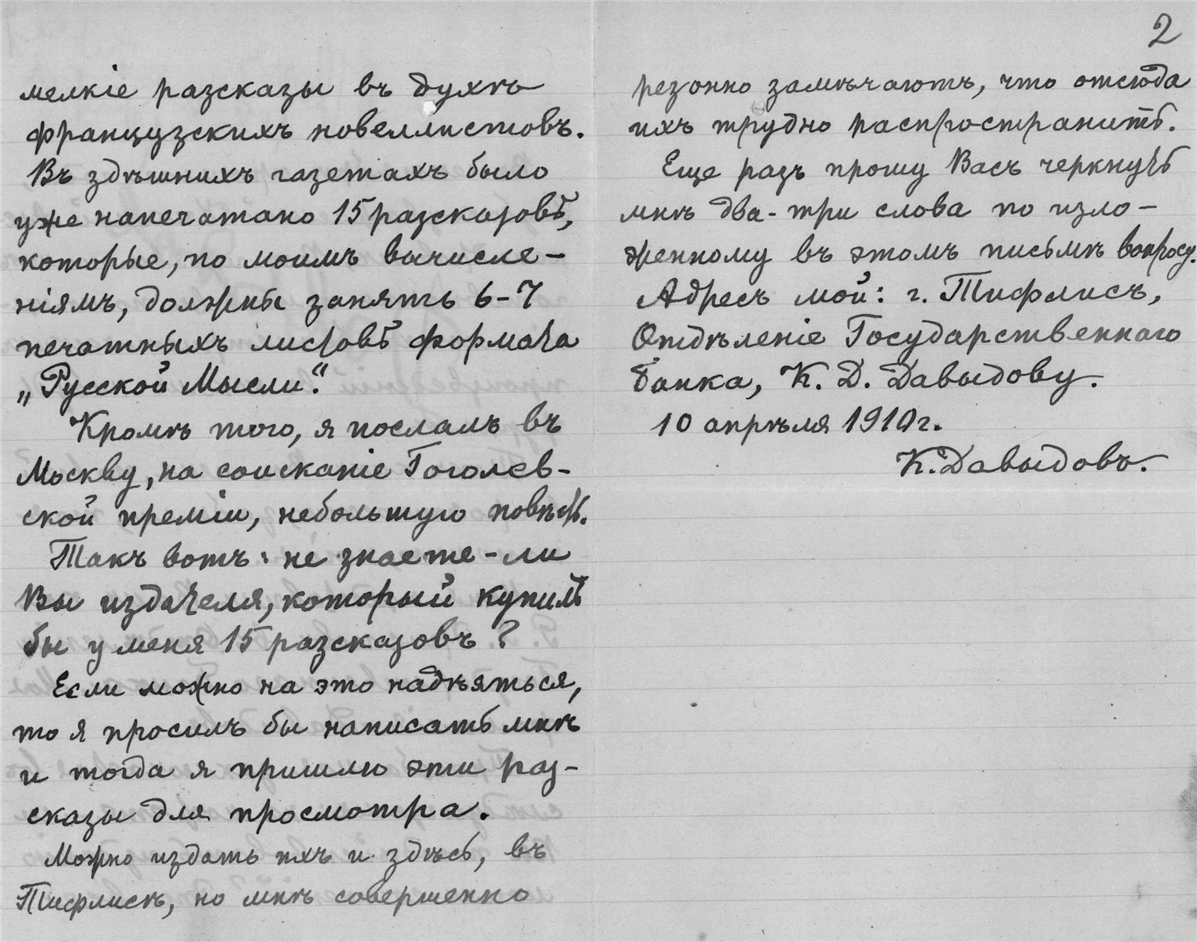 мелкіе разсказы въ духѣ
французскихъ новеллистовъ.
Въ здѣшнихъ газетахъ было
уже напечатано 15 разсказовъ,
которые, по моимъ вычисле-
ніямъ, должны занять 6-7
печатныхъ листовъ формата
„Русской Мысли“.
Кромѣ того, я послалъ въ
Москву, на соисканіе Гоголев-
ской преміи, небольшую повѣсть.
Такъ вотъ: не знаете-ли
Вы издателя, который купилъ
бы у меня 15 разсказовъ?
Если можно на это надѣяться,
то я просилъ бы написать мнѣ
и тогда я пришлю эти раз-
сказы для просмотра.
Можно издать ихъ и здѣсь, въ
Тифлисѣ, но мнѣ совершенно
2
резонно замѣчаютъ, что отсюда
ихъ трудно распространить.
Еще разъ прошу Васъ черкнуть
мнѣ два-три слова по изло-
женному въ этомъ письмѣ вопросу.
Адресъ мой: г. Тифлисъ,
Отдѣленіе Государственнаго
банка, К. Д. Давыдову.
10 апрѣля 1910 г.
К. Давыдовъ.